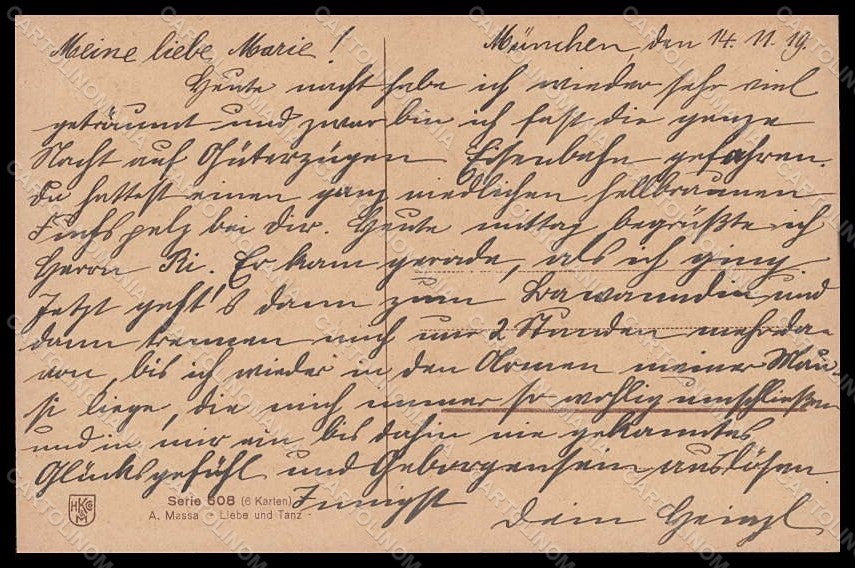 Meine liebe Marie! München, den 14. 11. 19.
Heute nacht habe ich wieder sehr viel
geträumt und zwar bin ich fast die ganze
Nacht auf Güterzügen Eisenbahn gefahren.
Du hattest einen ganz niedlichen hellbraunen
Fuchspelz bei dir. Heute mittag begrüßte ich
Herrn Ri. Er kam gerade, als ich ging.
Jetzt geht's dann zum und
dann trennen mich nur 2 Stunden mehr da-
von, bis ich wieder in den Armen meiner Mau-
si liege, die mich immer so wohlig umschließen
und in mir ein bis dahin nie gekanntes
Glücksgefühl und Geborgensein auslösen.
Innigst
Dein Heinzl
HKCo
M
Serie 508 (6 Karten)
A. Massa - Liebe und Tanz
CARTOLINOMANIA